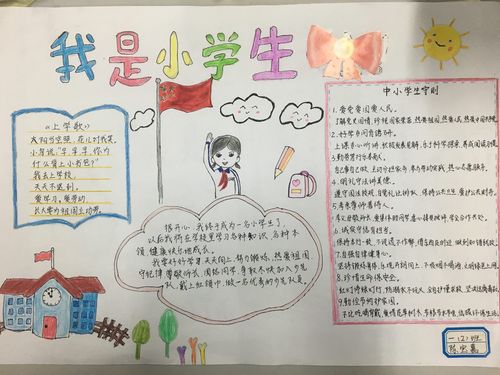 我是小学生
《上学歌》
太阳当空照，花儿对我笑。
小鸟说："早早早，你为
什么背上小书包？"
我去上学校，
天天不迟到。
爱学习，爱劳动，
长大要为祖国立功劳。
很开心，我终于成为一名小学生了，
以后我将在学校里学习各种知识、各种本
领，健康快乐地成长。
我要好好学习天天向上，努力锻炼，热爱祖国，
守纪律，尊敬师长，团结同学，争取尽快加入少先
队，戴上红领巾，做一名优秀的少先队员。
中小学生守则
1.爱党爱国爱人民。
了解党史国情，珍视国家荣誉，热爱祖国，热爱人民，热爱中国共产党。
2.好学多问肯钻研。
上课专心听讲，积极发表见解，乐于科学探索，养成阅读习惯。
3.勤劳笃行乐奉献。
自己事自己做，主动分担家务，参与劳动实践，热心志愿服务。
4.明礼守法讲美德。
遵守国法校纪，自觉礼让排队，保持公共卫生，爱护公共财物。
5.孝亲尊师善待人。
孝父母敬师长，爱集体助同学，虚心接受批评，学会合作共处。
6.诚实守信有担当。
保持言行一致，不说谎不作弊，借东西及时还，做到知错就改。
7.自强自律健身心。
坚持锻炼身体，乐观开朗向上，不吸烟不喝酒，文明绿色上网。
8.珍惜生命保安全。
红灯停绿灯行，防溺水不玩火，会自护懂求救，坚决远离毒品。
9.勤俭节约护家园。
不比吃喝穿戴，爱惜花草树木，节粮节水节电，低碳环保生活。
一（2）班